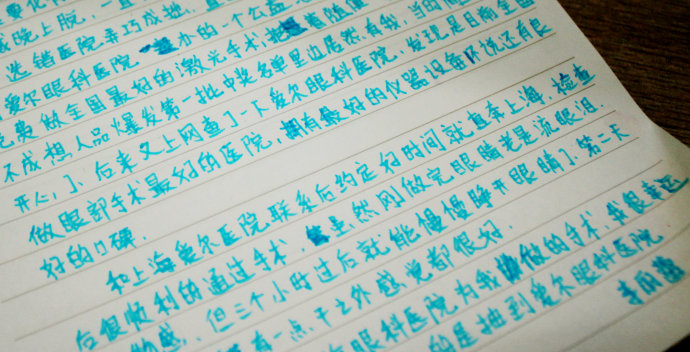 要变化
或院上院，一直
选错医院弄巧成拙，直
爱尔眼科医院 举办的一个公益
免费做全国最好的激光手术，抱着随
不成想人品爆发第一批中奖名单里边居然有我，当时
开心了，后来又上网查了一下爱尔眼科医院，发现是目前全国
做眼部手术最好的医院，拥有最好的仪器设备不说还有良
好的口碑．
和上海爱尔医院联系后约定好时间就直奔上海．检查
后很顺利的通过手术．虽然刚做完眼睛老是流眼泪．
但三个小时过后就能慢慢睁开眼睛了．第二天
有一点干之外感觉都很好．
眼科医院为我做的手术，我很幸运
的是抽到爱尔眼科医院